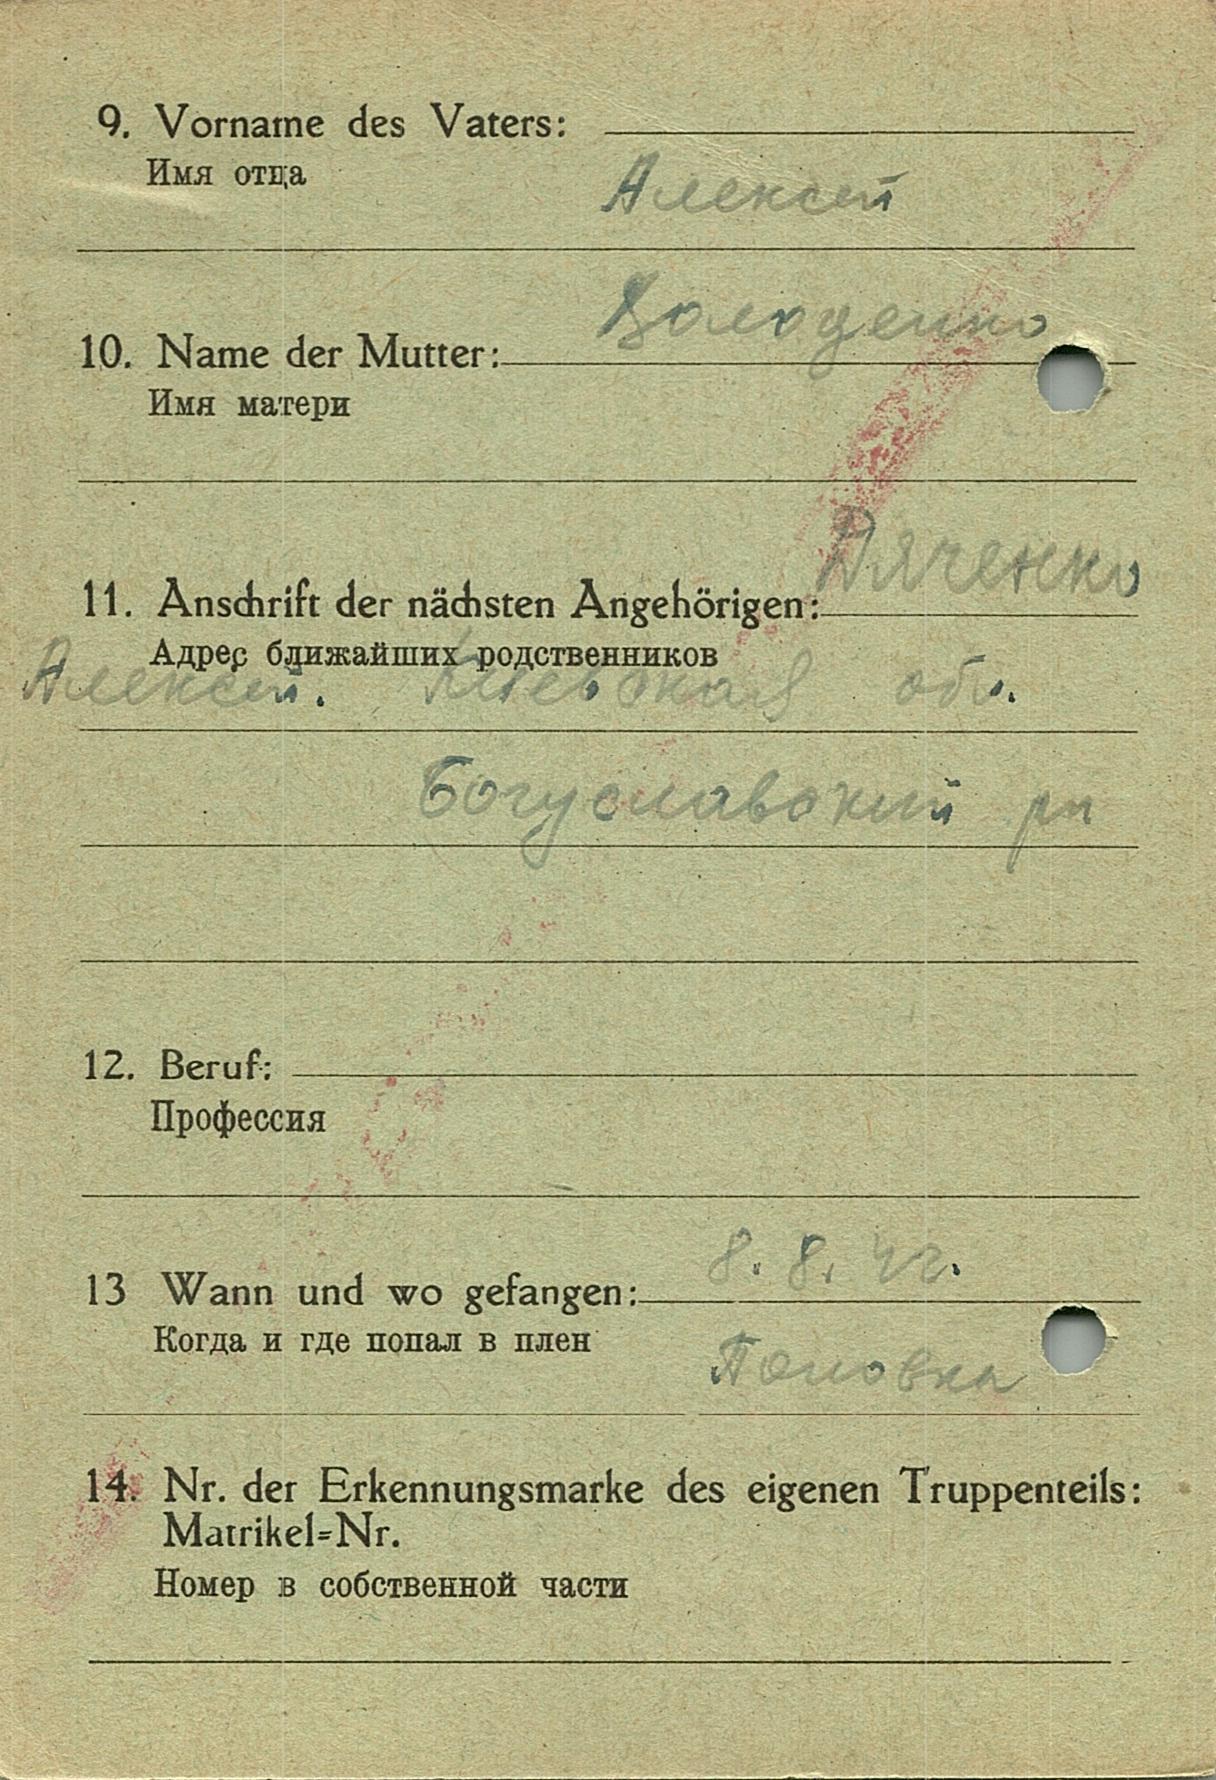 9. Vorname des Vaters:
Имя отца
Алексей
10. Name der Mutter:
Имя матери
Дяченко
11. Anschrift der nächsten Angehörigen:
Адрес ближайших родственников
Алексей. Киевская обл.
Богуславский рн
12. Beruf:
Профессия
8. 8. 42г.
13 Wann und wo gefangen:
Когда и где попал в плен
14. Nr. der Erkennungsmarke des eigenen Truppenteils:
Matrikel=Nr.
Номер в собственной части